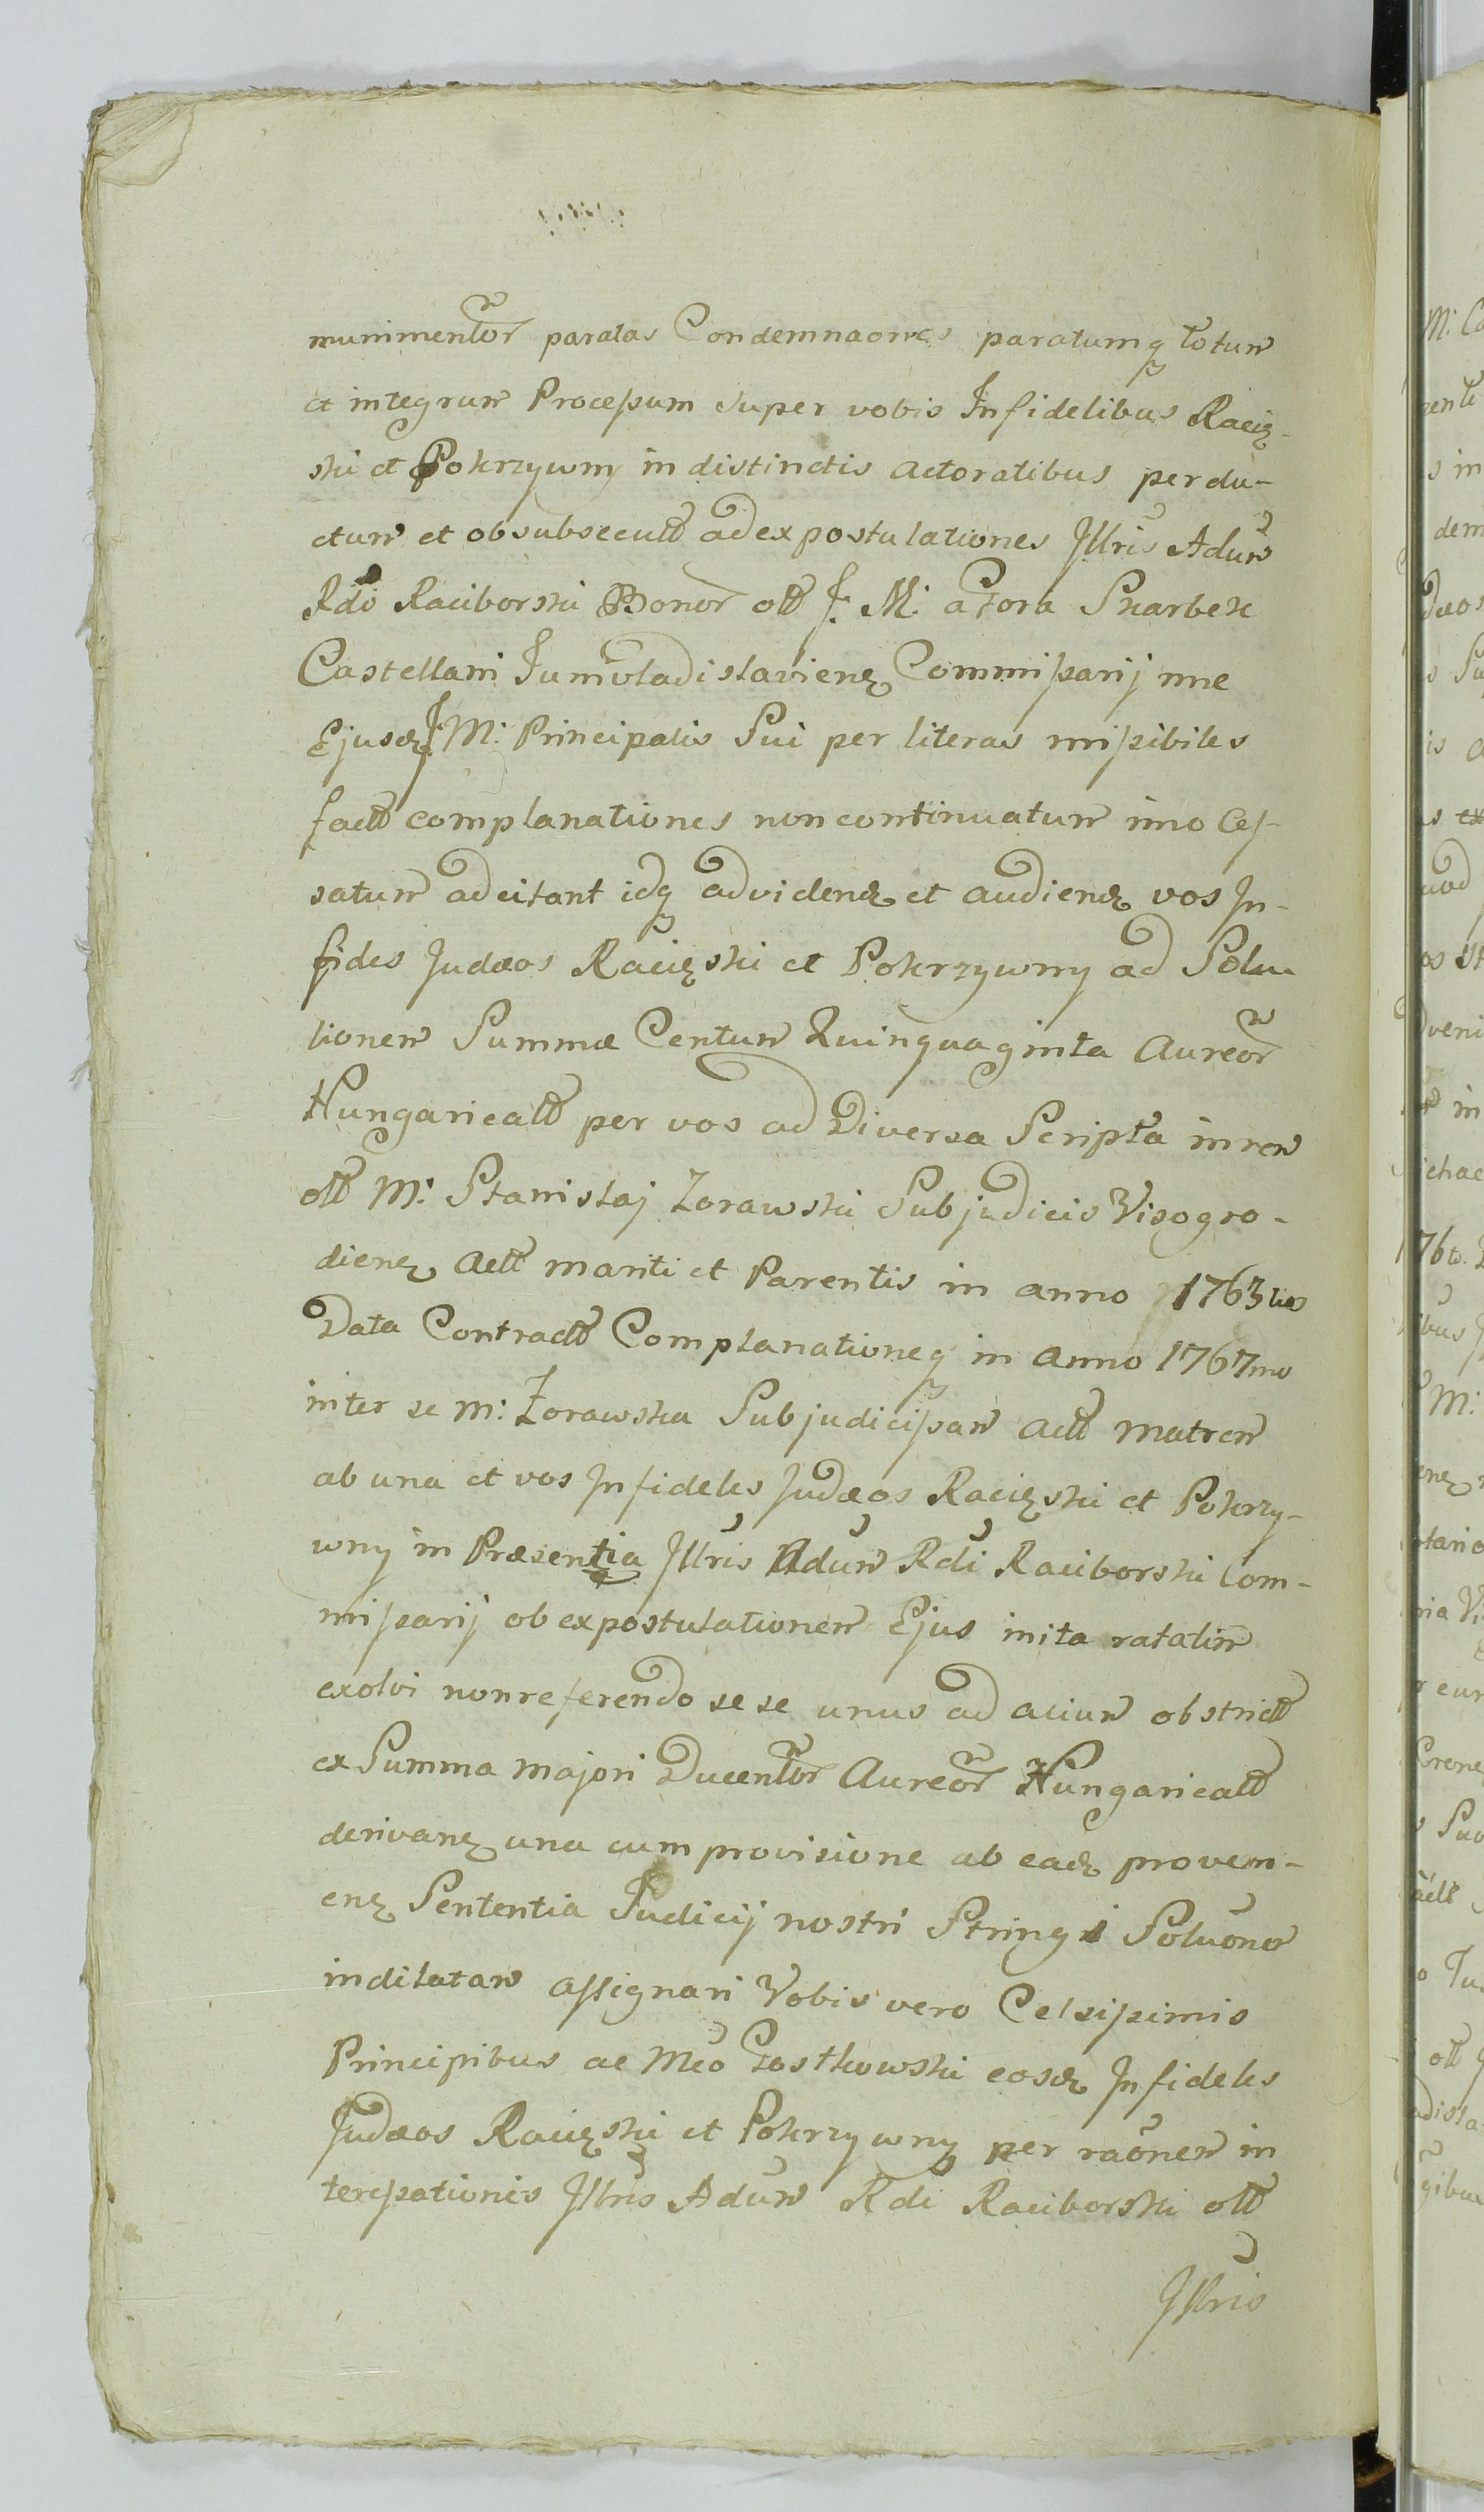 munimentor paratas Condemnaones paratumq totum
et integrum Processum super vobis Infidelibus Racię-
ski et Pokrzywny in distinctis actoratibus perdu-
ctum et obsubsecutt ad expostulationes Illris Adum
Rdi Raciborski Bonor ott J: M: a Gora Skarbek
Castellani Juniuladislavienẹ Commissarij nne
Ejusdẹ J: M: Principalis Sui per literas missibiles
factt complanationes non continuatum imo Ces-
satum adcitant idq ad videndẹ et audiendẹ vos In-
fides Judæos Racięski et Pokrzywny ad Solu
tionem Summæ Centum Quinquaginta Aureor
Hungaricatt per vos ad Diversa Scripta in rem
ott M: Stanislaj Zorawski Subjudicis Visogro-
dienẹ actt mariti et Parentis in anno 1763tio
Data Contractt Complanationeq in anno 1767mo
inter se M: Zorawska Subjudicissam actt matrem
ab una et vos Infideles Judæos Racięski et Pokrzy-
wny in Præsentia Illris Adum Rdi Raciborski Com-
missarij ob expostulationem Ejus inita ratatim
exolvi non referendo se se unus ad alium obstrictt
ex Summa majori Ducentor Aureor Hungaricatt
derivanẹ una cum provisione ab eadẹ proveni-
enẹ Sententia Judicij nostri Stringi Soluonem
indilatam assignari Vobis vero Celsissimis
Principibus ac Mco Gostkowski eosdẹ Infideles
Judæos Racięski et Pokrzywny per raonem in
tercessationis Illris Adum Rdi Raciborski ott
Illris